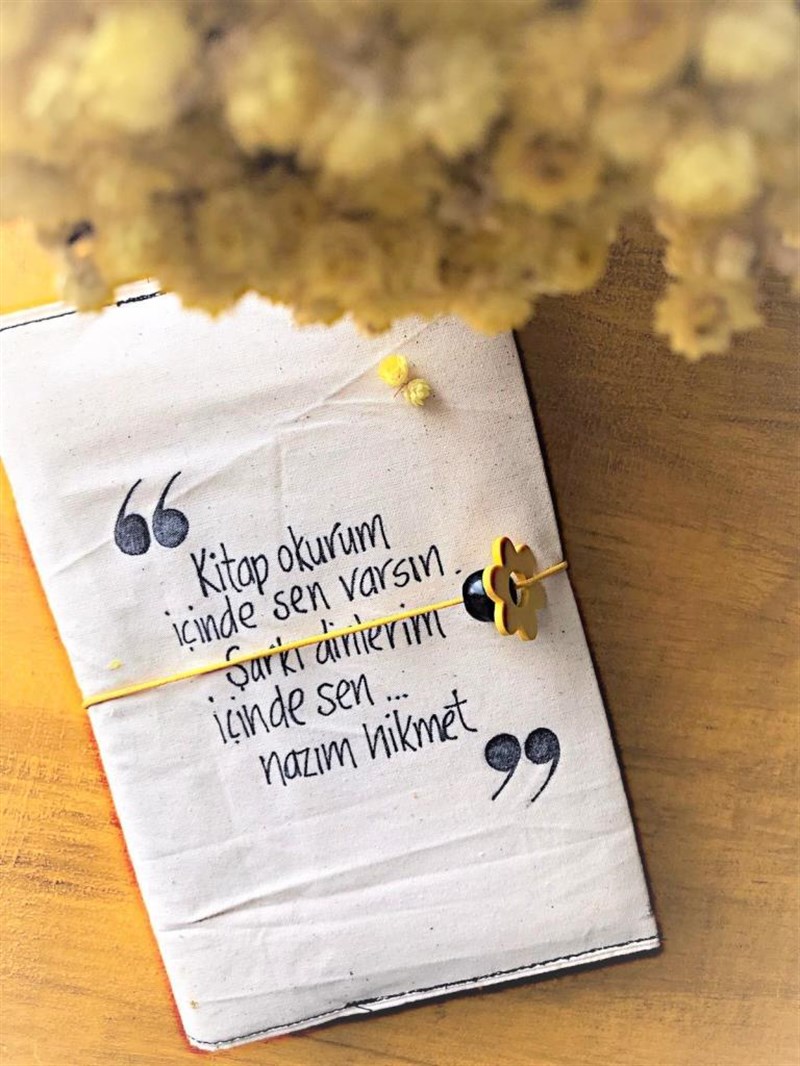 “
Kitap okurum
içinde sen varsın.
Şarkı dinlerim
içinde sen...
nazım hikmet
”